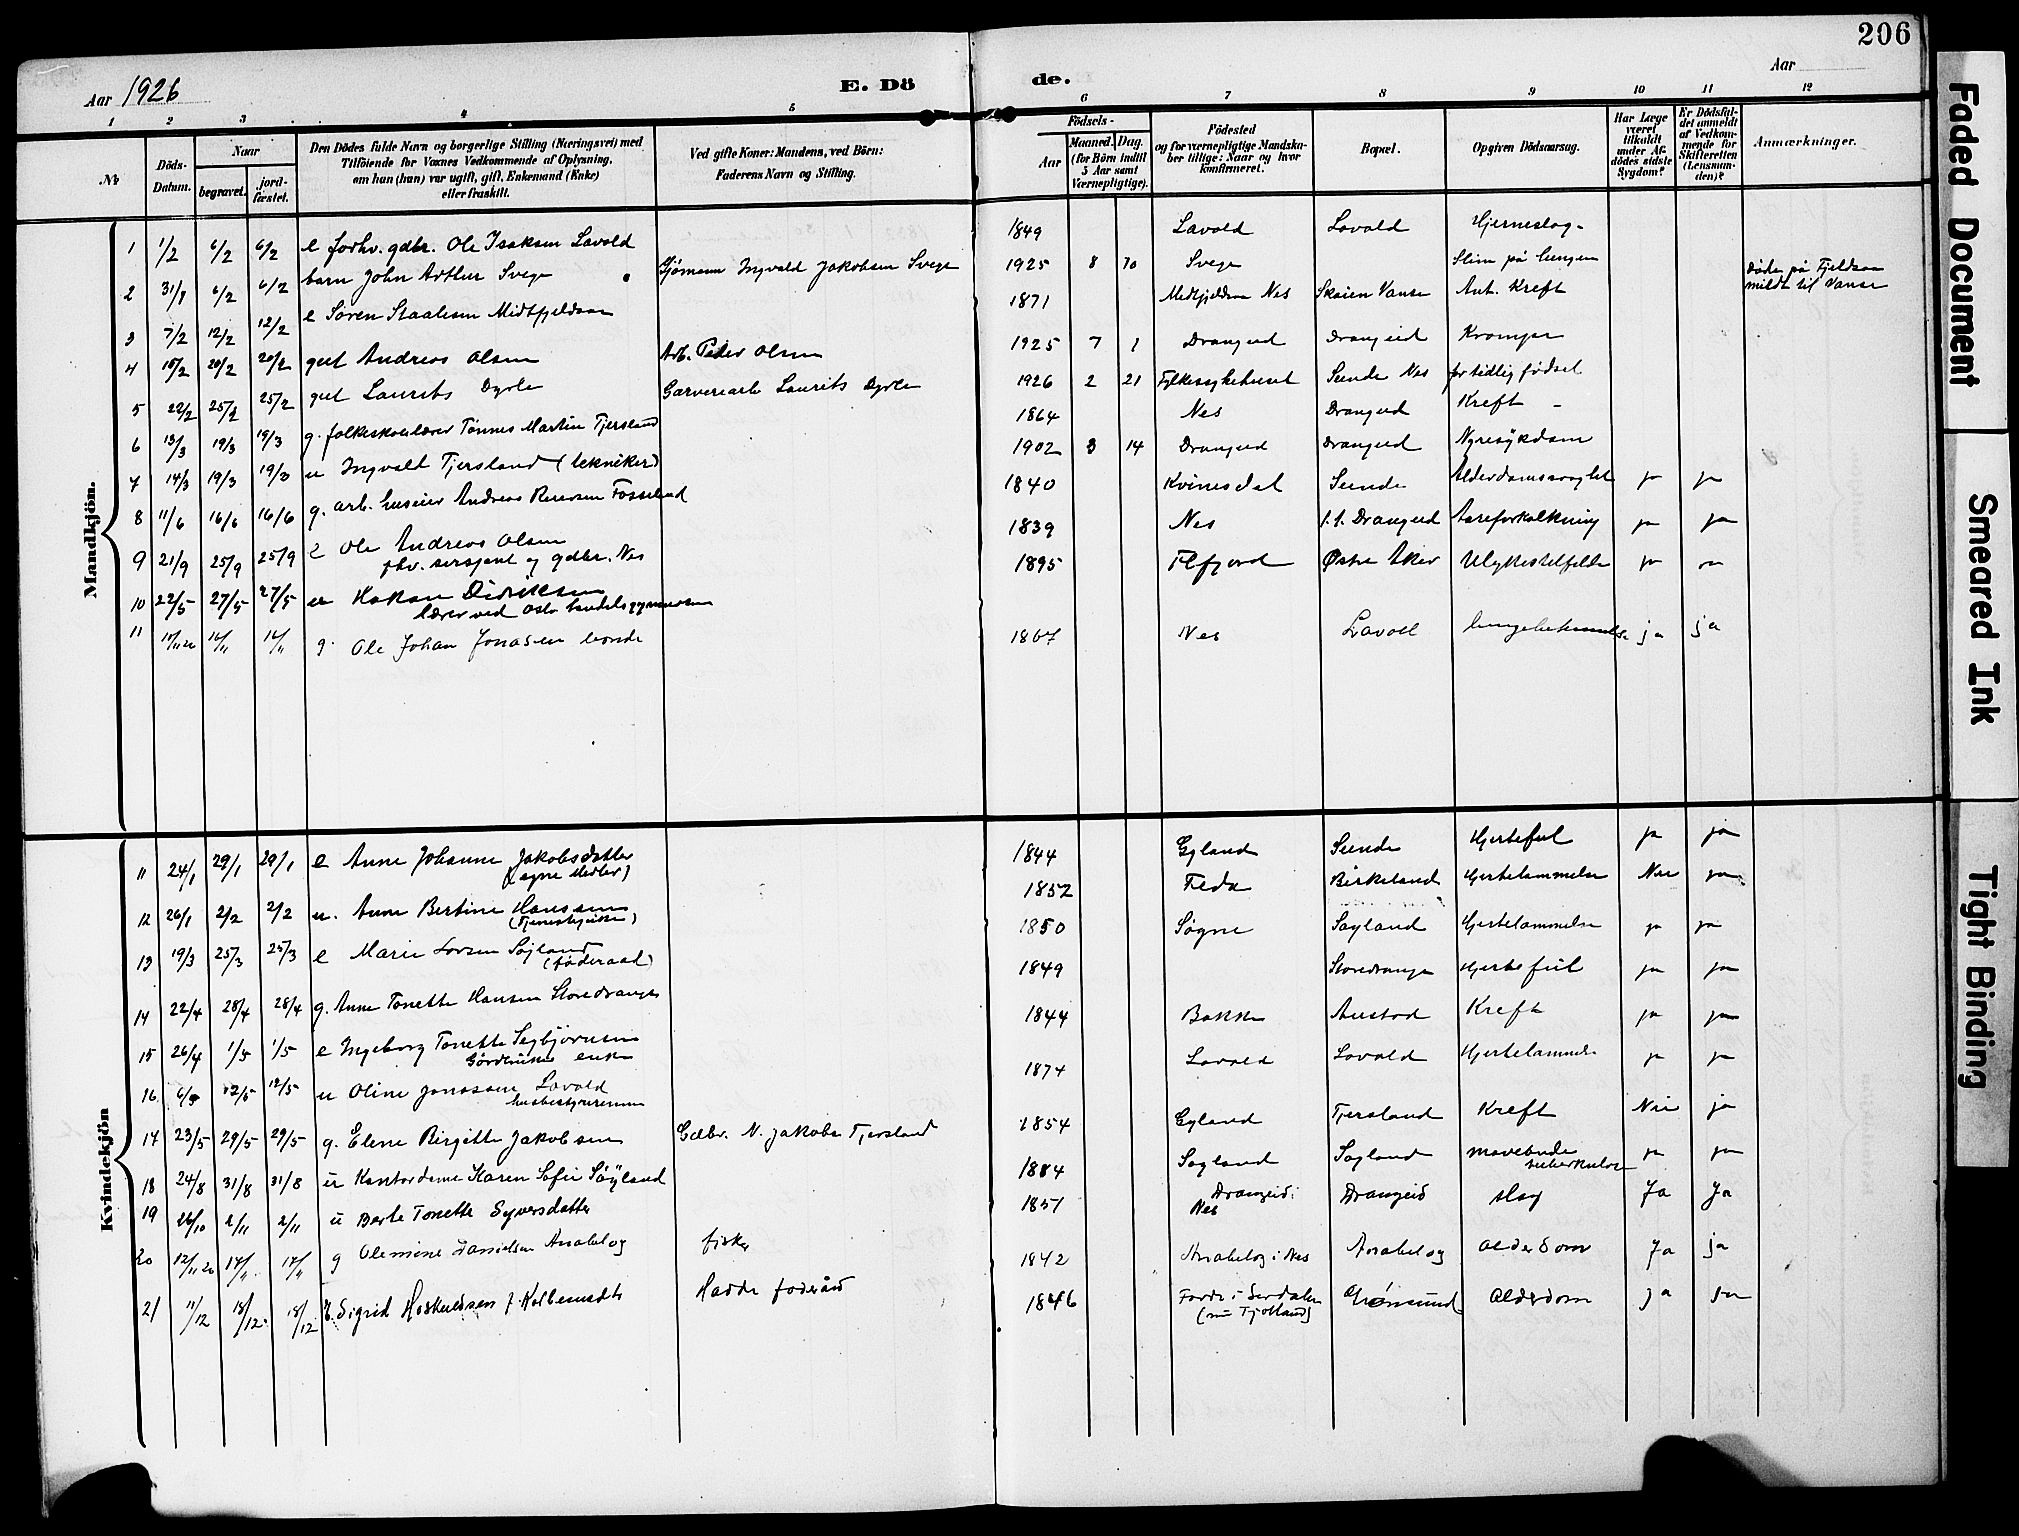 206
Aar 1926
E. Dö de.
Aar
1 2 3 4 5 6 7 8 9 10 11 12
№
Döds-Datum.
Naar
begravet.
jord-fæstet.
Den Dödes fulde Navn og borgerlige Stilling (Næringsvei) med
Tilföiende for Voxnes Vedkommende af Oplysning,
om hun (han) var ugift, gift, Enkemand (Enke)
eller fraskilt.
Ved gifte Koner: Mandens, ved Börn:
Faderens Navn og Stilling.
Födsels-
Aar
Maaned. Dag.
(for Börn indtil
5 Aar samt
Værnepligtige).
Födested
og for værnepligtige Mandska-
ber tillige: Naar og hvor
konfirmeret.
Bopæl.
Opgiven Dödsaarsag.
Har Læge
været
tilkaldt
under Af-
dödes sidste
Sygdom?
Er Dödsfal-
det anmeldt
af Vedkom-
mende for
Skifteretten
(Lensman-
den)?
Anmærkninger.
Mandkjön.
1 1/2 6/2 6/2 e forhv. gdbr. Ole Isaksen Lavold 1849 Lavold Lavold Hjerneslag
2 31/1 6/2 6/2 barn John Arthur Svege Sjömann Ingvald Jakobsen Svege 1925 8 Svege Slim på lungen
3 7/2 12/2 12/2 e Sören Staalesen Midtfjeldsaa 1871 Nes Skoien Vanse Ant. Kreft
döde på Fjeldsaa
meldt til Vanse
4 20/2 20/2 gut Andreas Olsen Arb. Peder Olsen 1925 7 1 Drangeid Drangeid Kramper
5 22/2 25/2 25/2 gut Laurits Dyrli Garveriarb Laurits Dyrli 1926 2 21 Fylkessykehuset Sunde Nes for tidlig födsel
6 13/3 19/3 19/3 g. folkeskolelærer Tönnes Martin Tjersland 1864 Nes Drangeid Kreft
7 14/3 19/3 19/3 u Ingvald Tjersland (tekniker) 1902 3 14 Drangeid Drangeid Nyresykdom
8 11/6 16/6 16/6 g. arb. huseier Andreas Fosseland 1840 Kvinesdal Sunde Alderdomssvaghet ja ja
9 21/9 25/9 25/9 Ole Andreas Olsen
fhv. sersjant og gdbr. Nes 1839 Nes Drangeid Aareforkalkning ja ja
10 22/5 27/5 27/5 Hakon Didriksen
lærer ved Oslo handelsgymnasium 1895 Flfjord Østre Aker Ulykkestilfelde ja
11 16/11 16/11 g. Ole Johan Jonassen bonde 1867 Nes Lavoll ja ja
Kvindekjön
11 24/1 29/1 29/1 e Anne Johanne Jakobsdatter 1844 Gyland Sunde Hjertefeil ja ja
12 26/1 2/2 2/2 u. Anne Bertine Hanssen
(Tjenestepike) 1852 Feda Birkeland Hjertelammelse Nei ja
13 19/3 25/3 25/3 e Marie Larsen Söyland
(föderaad) 1850 Søgne Søyland Hjertelammelse ja ja
14 22/4 28/4 28/4 g. Anne Tonette Hansen Storedrange 1849 Storedrange Hjertefeil ja ja
15 26/4 1/5 1/5 e Ingeborg Tonette Segbjörnsen
Gårdbrukers enke 1844 Bakke Austad Kreft ja ja
16 6/5 12/5 12/5 u Oline Jonassen Lavold
husbestyrerinne 1874 Lavold Lavold Hjertelammelse ja ja
17 23/5 29/5 29/5 g. Elene Birgitte Jakobsen Gdbr. N. Jakobs Tjersland 1854 Gyland Tjersland Kreft Nei ja
18 24/8 31/8 31/8 u Kontordame Karen Sofie Söyland 1884 Søyland Søyland tuberkulose ja ja
19 26/10 2/11 2/11 u Berte Tonette Syversdatter 1857 Drangeid i
Nes Drangeid slag Ja Ja
20 12/11 17/11 17/11 g Olemine Danielsen Anabeløg fisker 1842 Anabeløg i Nes Anabeløg Alderdom Ja ja
21 11/12 18/12 18/12 E. Sigrid Hoskuldsen f. Kolbensdt. Hadde foderåd 1846 i Serdalen
(nu Tjotland) Alderdom ja ja
Faded Document
Smeared Ink
Tight Binding